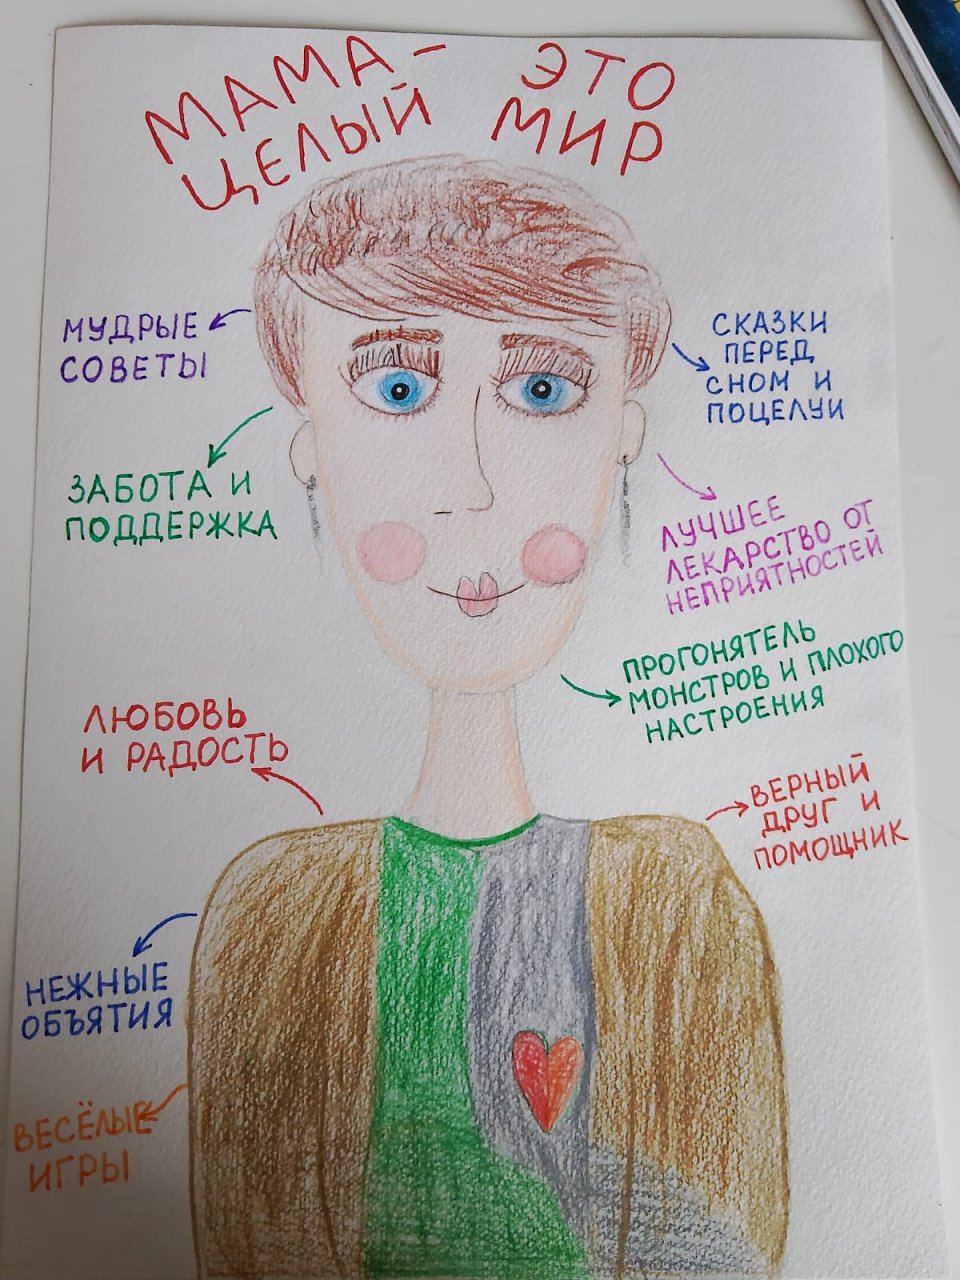 МАМА - ЭТО
ЦЕЛЫЙ МИР
МУДРЫЕ
СОВЕТЫ
ЗАБОТА И
ПОДДЕРЖКА
ЛЮБОВЬ
И РАДОСТЬ
НЕЖНЫЕ
ОБЪЯТИЯ
ВЕСЁЛЫЕ
ИГРЫ
СКАЗКИ
ПЕРЕД
СНОМ И
ПОЦЕЛУИ
ЛУЧШЕЕ
ЛЕКАРСТВО ОТ
НЕПРИЯТНОСТЕЙ
ПРОГОНЯТЕЛЬ
МОНСТРОВ И ПЛОХОГО
НАСТРОЕНИЯ
ВЕРНЫЙ
ДРУГ И
ПОМОЩНИК